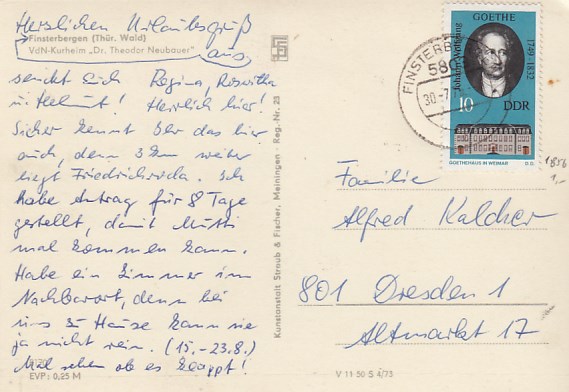 Herzlichen Urlaubsgruß
Finsterbergen (Thür. Wald)
VdN-Kurheim „Dr. Theodor Neubauer"
aus,
sendet Euch Regina, Roswitha
u. Helmut! Herrlich hier!
Sicher kennt Ihr das hier
auch, denn 3 km weiter
liegt Friedrichroda. Ich
habe Antrag für 8 Tage
gestellt, damit Mutti
mal kommen kann.
Habe ein Zimmer im
Nachbarort, denn bei
uns zu Hause kann sie
ja nicht sein. (15.-23.8.)
Mal sehen ob es klappt!
EVP: 0,25 M
Kunstanstalt Straub & Fischer, Meiningen · Reg.-Nr. 25
GOETHE
Johann Wolfgang
1749-1832
10 DDR
GOETHEHAUS IN WEIMAR
FINSTERB
580
30.-7.
1,-
Familie
Alfred Kalcher
801 Dresden 1
Altmarkt 17
V 11 50 S 4/73